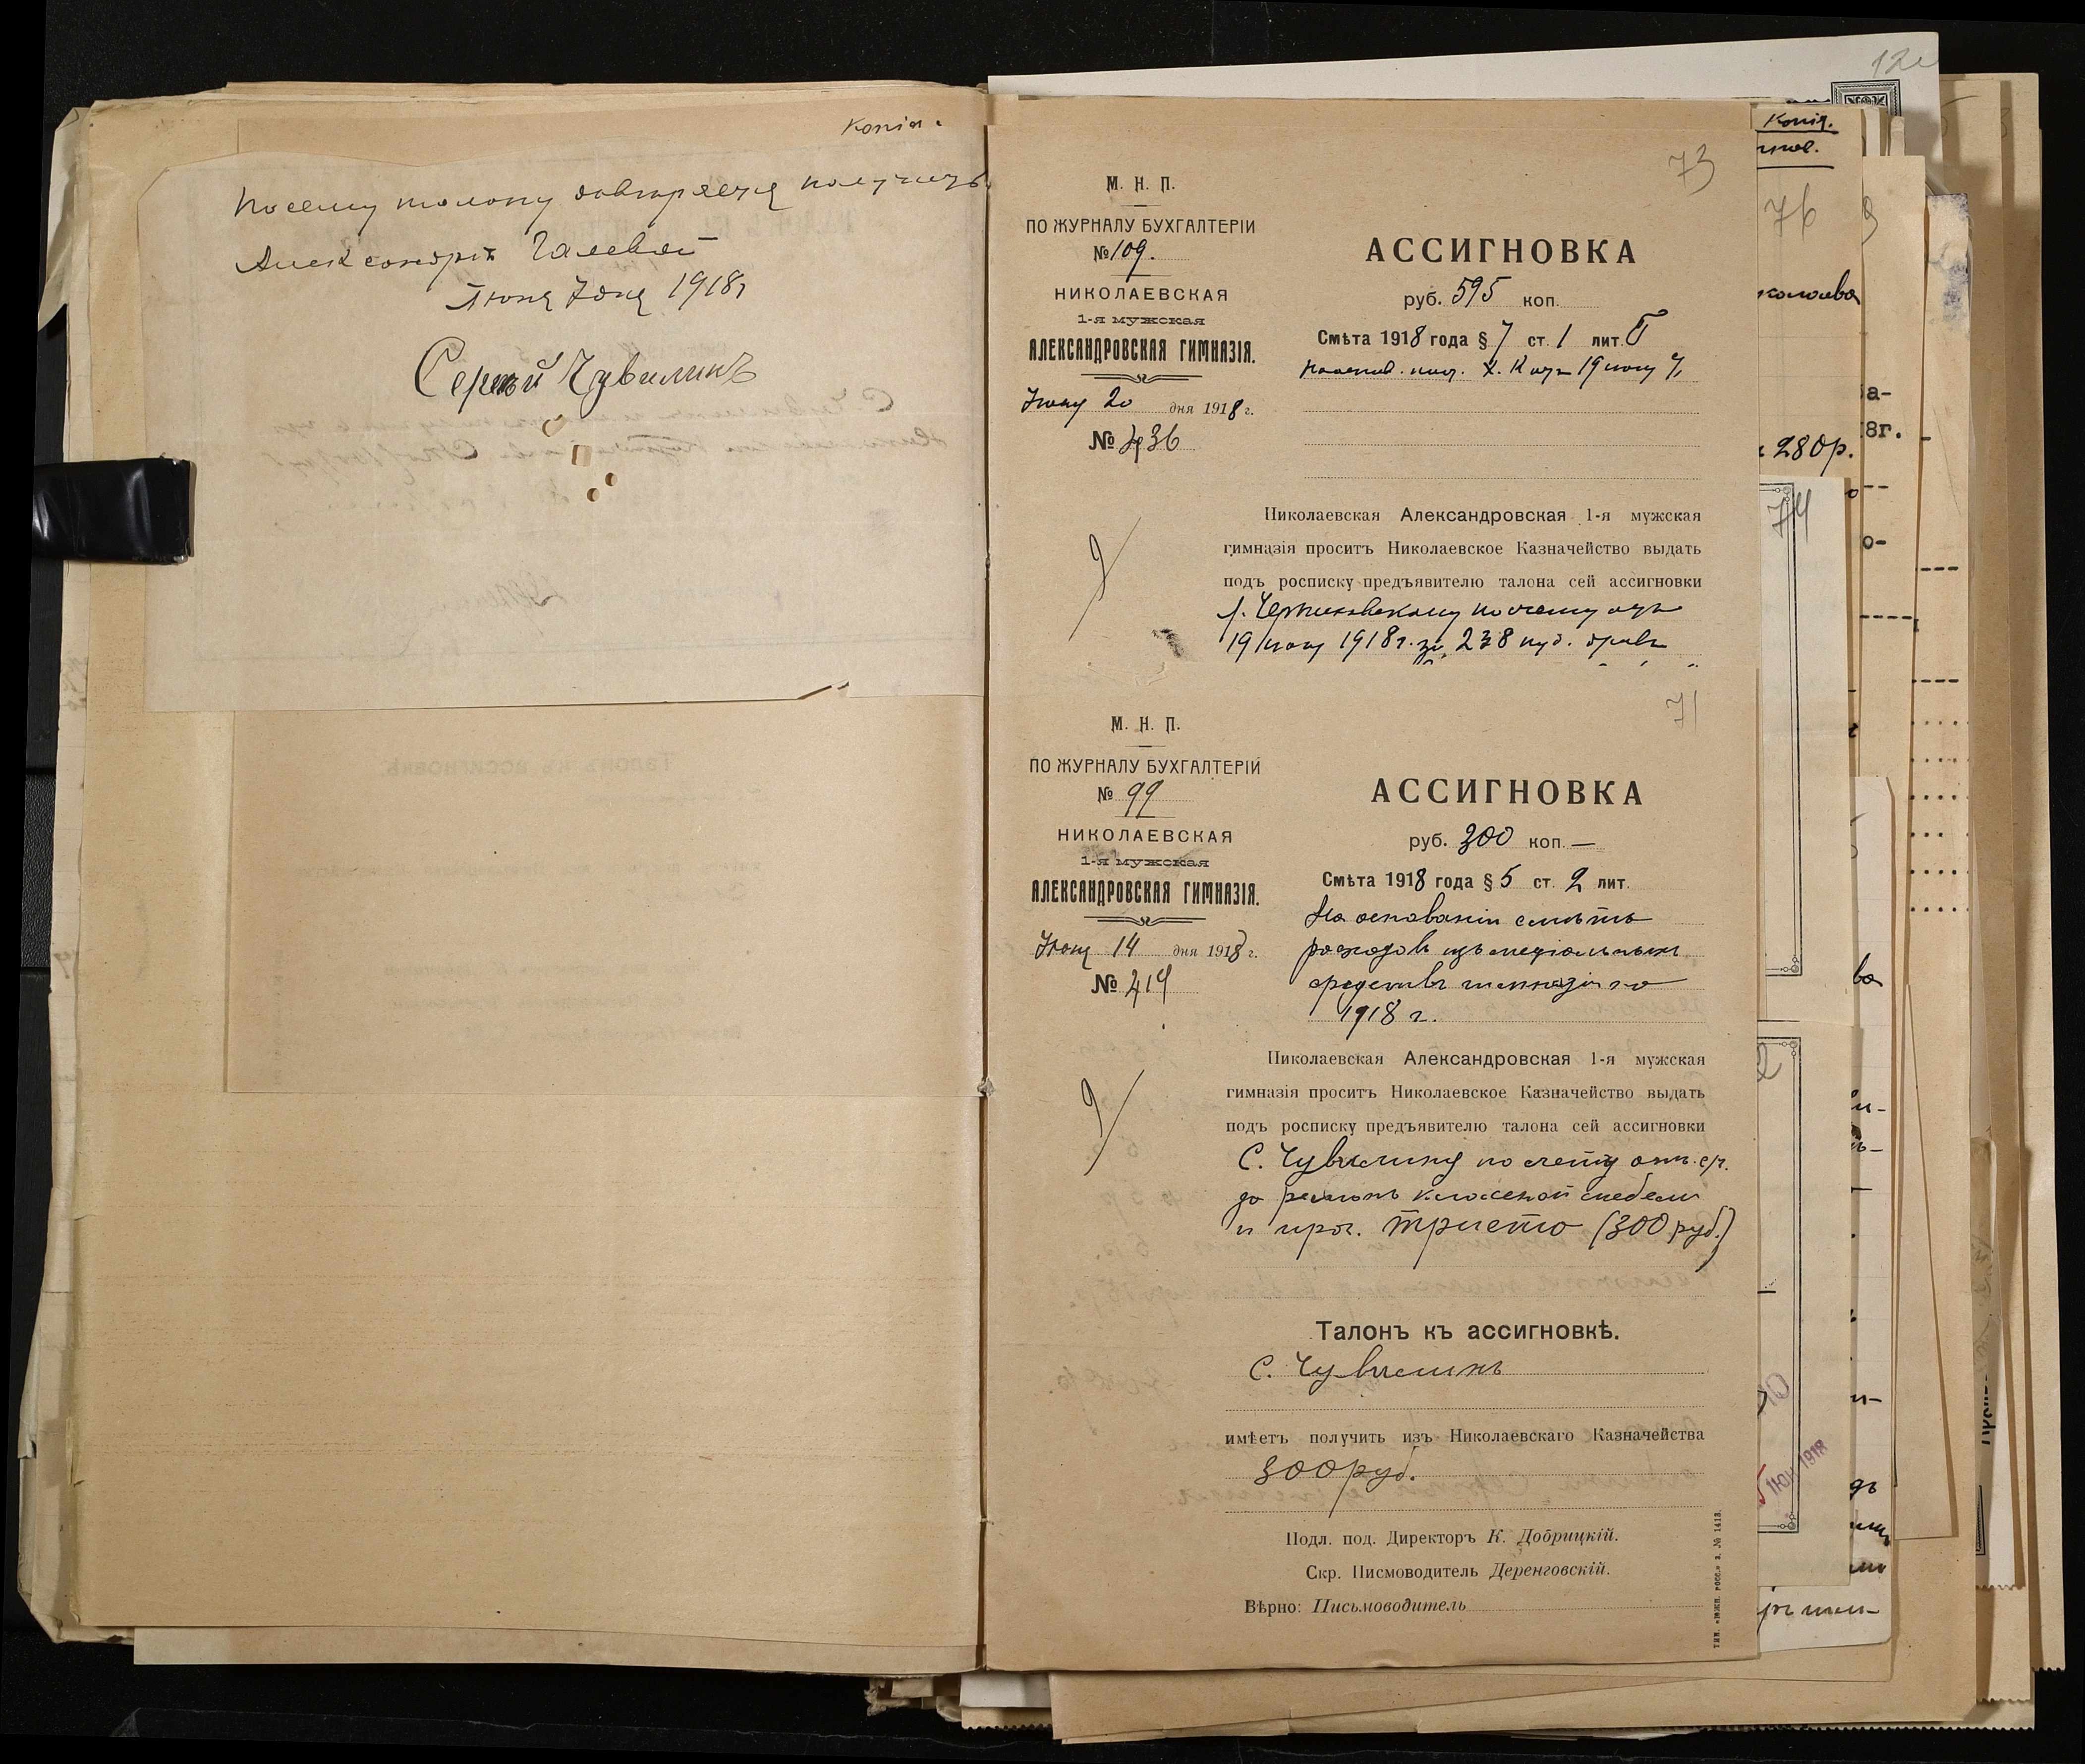 Копія.
По сему талону довѣряется получить
Александрѣ Галевой
Іюня 7 дня 1918 г
Сергѣй Чувилинъ
73
М. Н. П.
ПО ЖУРНАЛУ БУХГАЛТЕРІИ
№ 109.
НИКОЛАЕВСКАЯ
1-я мужская
АЛЕКСАНДРОВСКАЯ ГИМНАЗІЯ.
Іюня 20 дня 1918 г.
№ 436
АССИГНОВКА
руб. 595 коп.
Смѣта 1918 года § 7 ст. 1 лит. Б
19 іюня
Николаевская Александровская 1-я мужская
гимназія проситъ Николаевское Казначейство выдать
подъ росписку предъявителю талона сей ассигновки
по счету отъ
19 іюня 1918 г. за 238 пуд. дровъ
71
М. Н. П.
ПО ЖУРНАЛУ БУХГАЛТЕРІИ
№ 99
НИКОЛАЕВСКАЯ
1-я мужская
АЛЕКСАНДРОВСКАЯ ГИМНАЗІЯ.
Іюня 14 дня 1918 г.
№ 414
АССИГНОВКА
руб. 300 коп. —
Смѣта 1918 года § 5 ст. 2 лит.
На основаніи смѣты
расходовъ изъ спеціальныхъ
средствъ гимназіи на
1918 г.
Николаевская Александровская 1-я мужская
гимназія проситъ Николаевское Казначейство выдать
подъ росписку предъявителю талона сей ассигновки
С. Чувилину по счету
за ремонтъ классной мебели
и проч. триста (300 руб.)
Талонъ къ ассигновкѣ.
С. Чувилинъ
имѣетъ получить изъ Николаевскаго Казначейства
300 руб.
Подл. под. Директоръ К. Добрицкій.
Скр. Писмоводитель Деренговскій.
Вѣрно: Письмоводитель
тип. «Южн. росс.» з. № 1413.
Копія.
76
280р.
8г.
74
ІЮН 1918